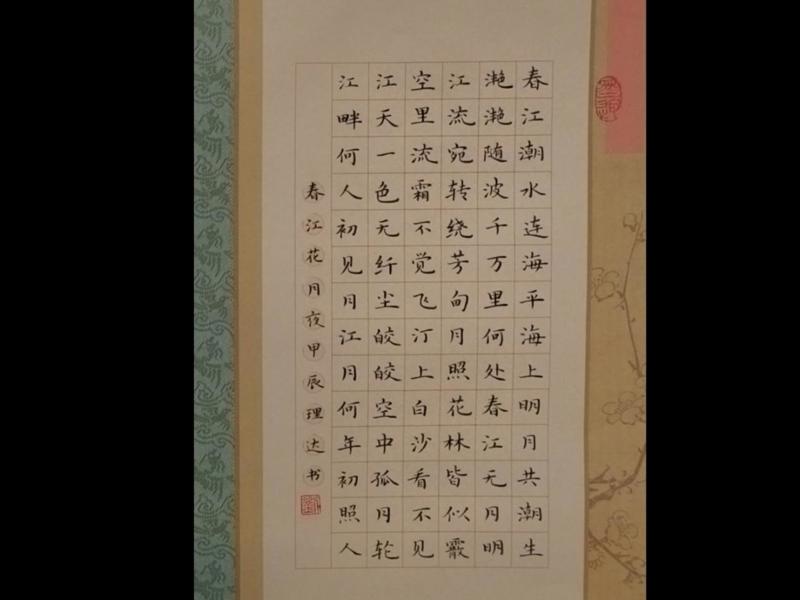 春江潮水连海平海上明月共潮生
滟滟随波千万里何处春江无月明
江流宛转绕芳甸月照花林皆似霰
空里流霜不觉飞汀上白沙看不见
江天一色无纤尘皎皎空中孤月轮
江畔何人初见月江月何年初照人
春江花月夜甲辰理达书